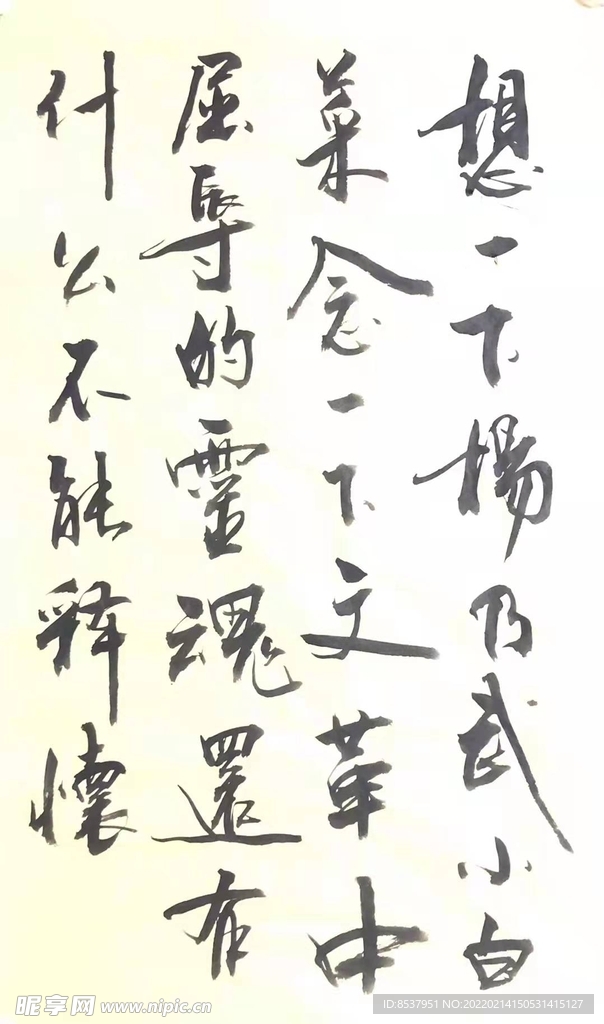 想一下楊乃武小白
菜念一下文革中
屈辱的靈魂還有
什么不能释懷
昵享网 www.nipic.cn
ID:8537951 NO:20220214150531415127